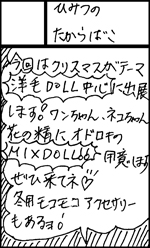 ひみつの
たからばこ
今回はクリスマスがテーマ
洋毛DOLL中心に出展
します!ワンちゃん、ネコちゃん
花の精に、オドロキの
MIXDOLLも用意します
ぜひ来てネ♡
冬用モコモコアクセサリー
もあるヨ!